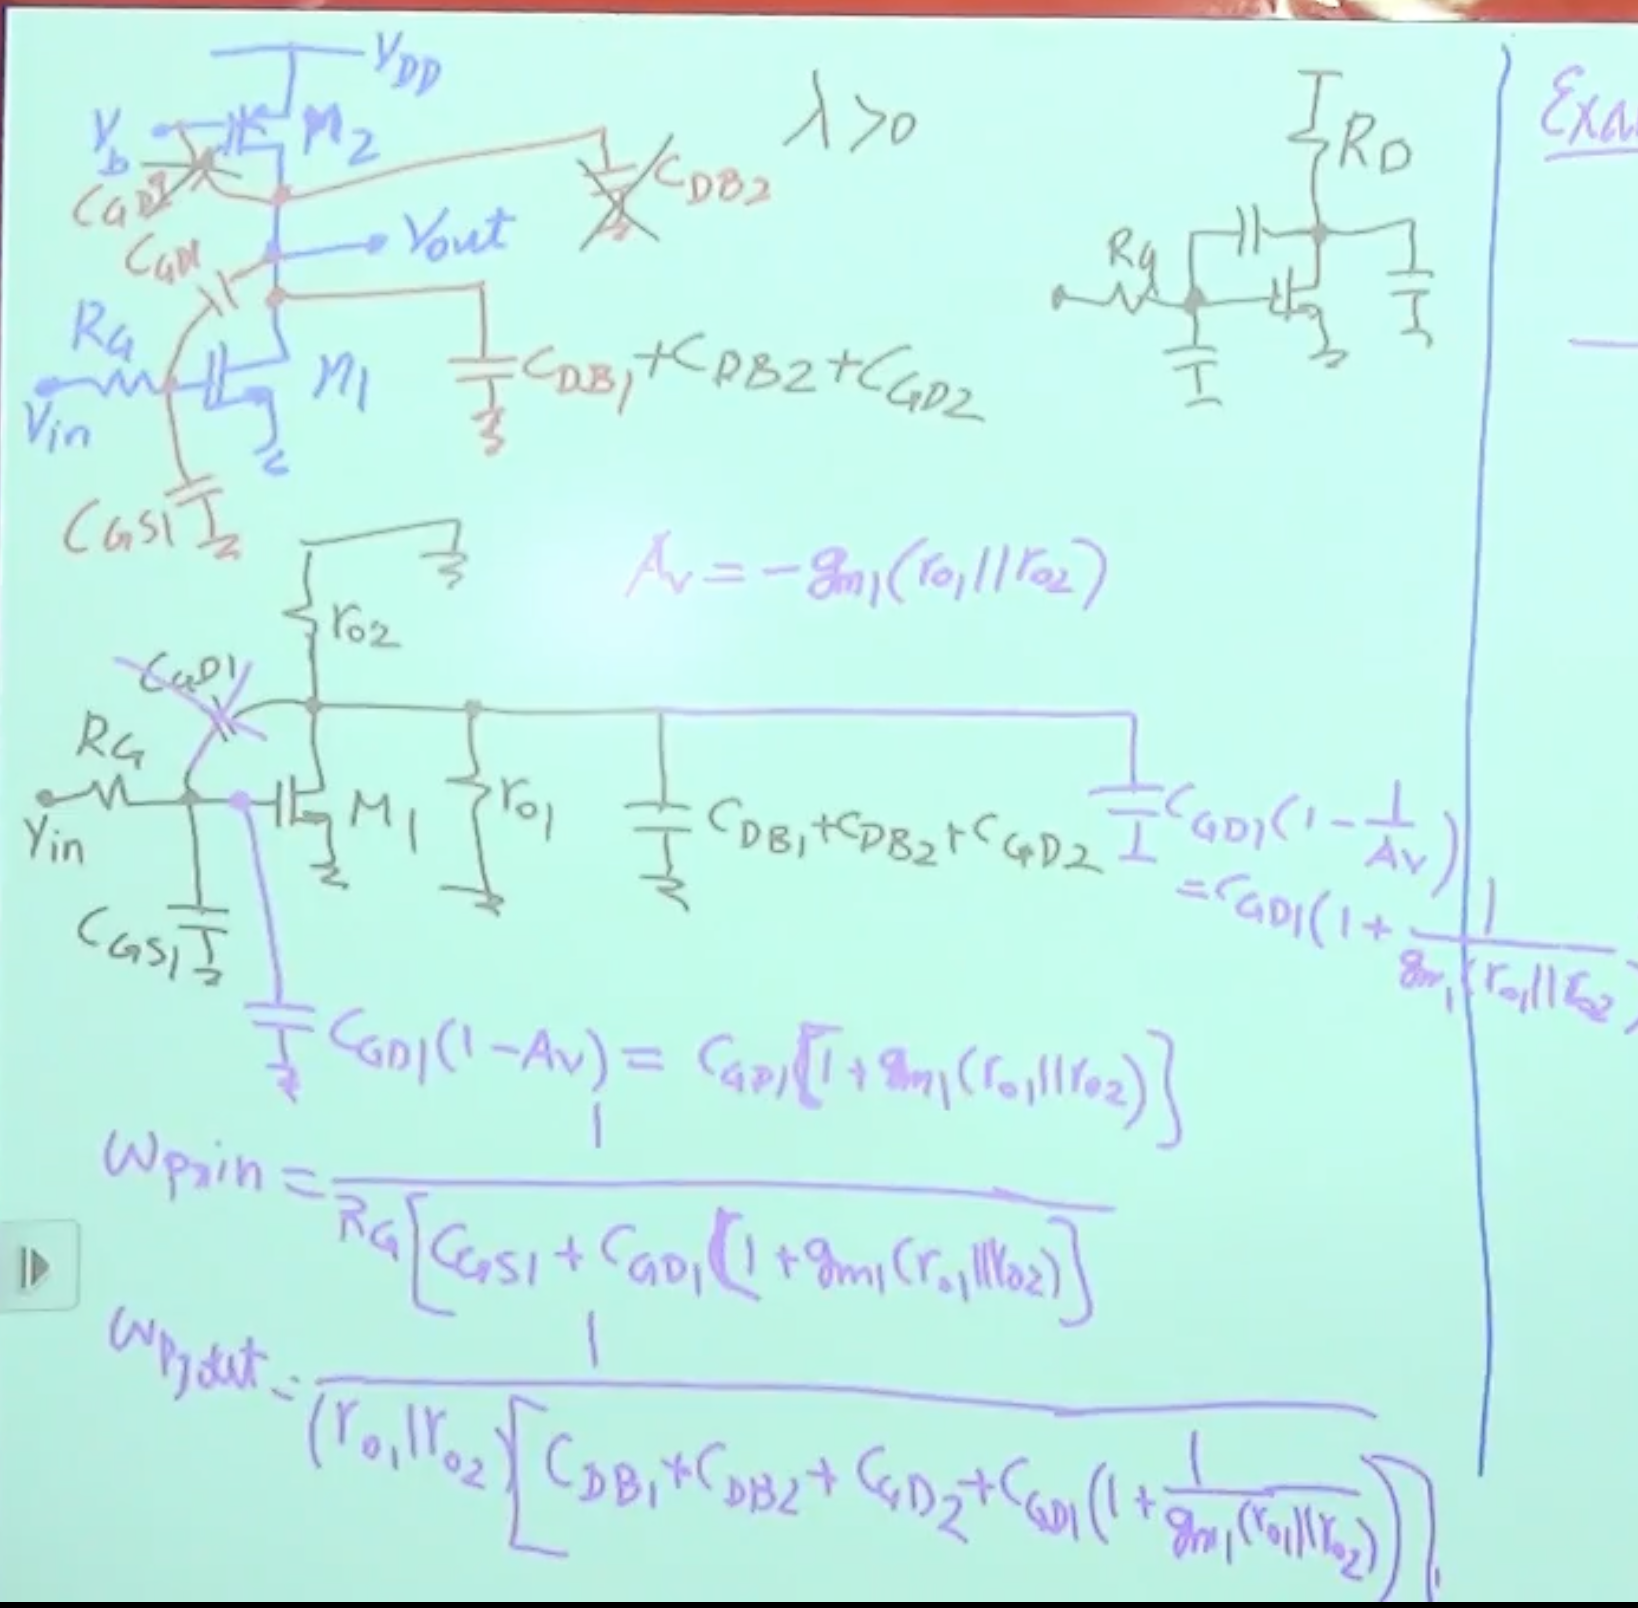 VDD
Vb
M2
CGD2
CDB2
λ>0
RD
Exa
CGD1
Vout
RG
RG
M1
CDB1+CDB2+CGD2
Vin
CGS1
Av = -gm1(ro1||ro2)
ro2
CGD1
RG
M1
ro1
CDB1+CDB2+CGD2
CGD1(1-1/Av)
Vin
=CGD1(1+1/gm1(ro1||ro2)
CGS1
CGD1(1-Av) = CGD1[1+gm1(ro1||ro2)]
ωp,in = 1/RG[CGS1+CGD1(1+gm1(ro1||ro2)]
ωp,out = 1/(ro1||ro2)[CDB1+CDB2+CGD2+CGD1(1+1/gm1(ro1||ro2))]